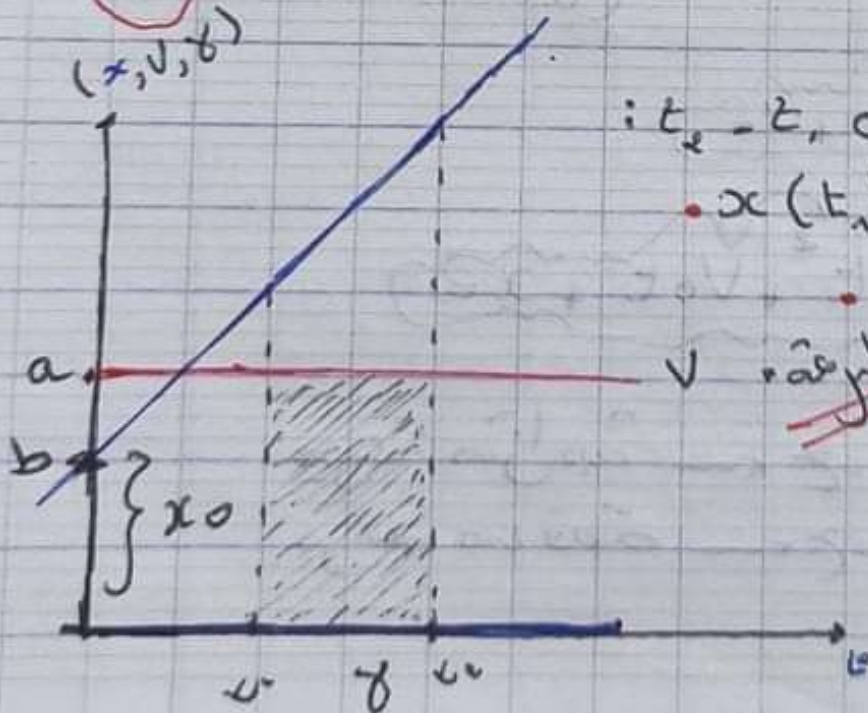 (x, v, γ)
: t₂ - t₁
x (t₁
a
v
b
x₀
γ
t